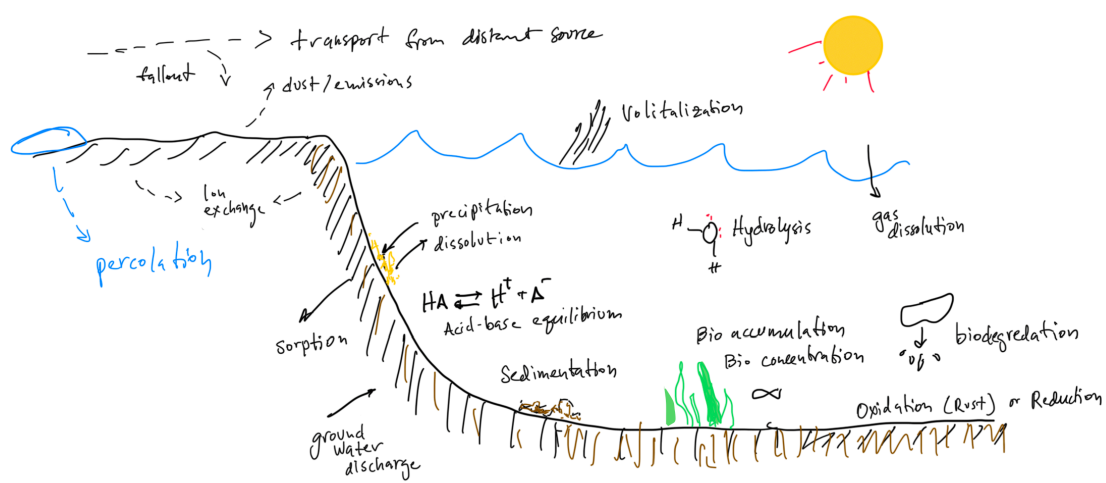 transport from distant source
fallout
dust/emissions
Volitalization
Ion
exchange
percolation
precipitation
dissolution
H
H
Hydrolysis
gas
dissolution
HA ⇌ H⁺ + A⁻
Acid-base equilibrium
sorption
Bio accumulation
Bio concentration
biodegredation
Sedimentation
Oxidation (Rust) or Reduction
ground
water
discharge